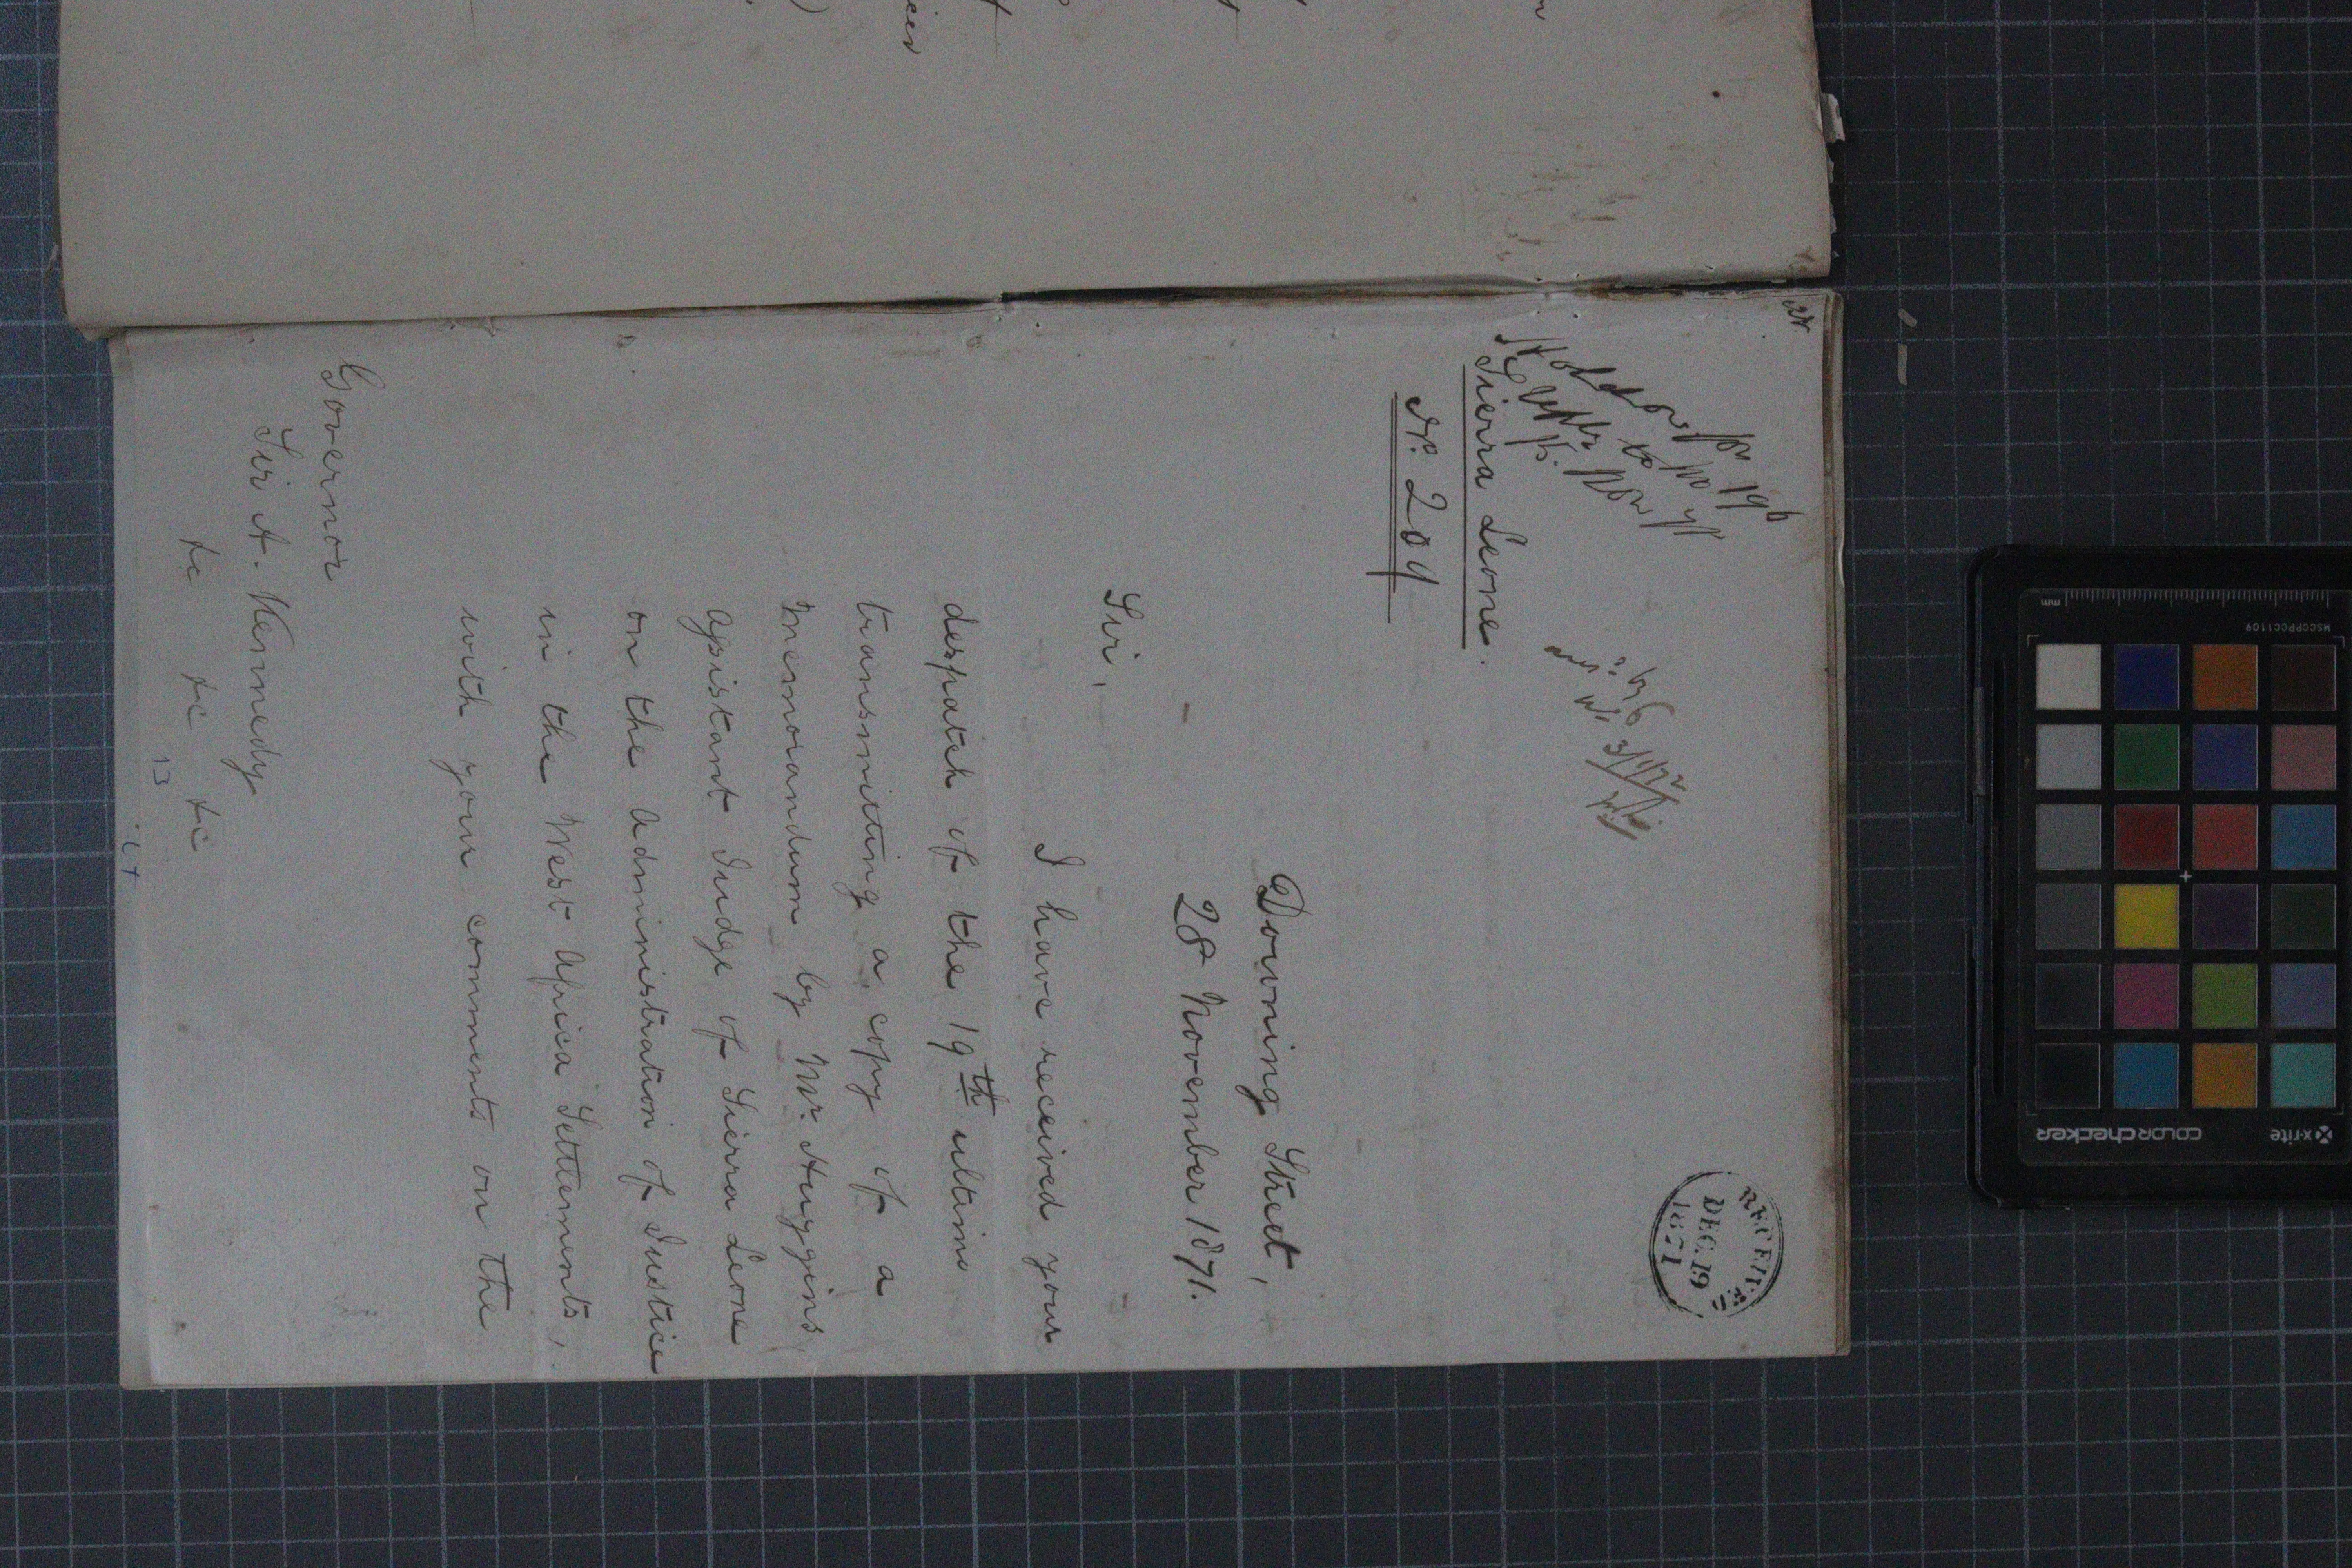 RECEIVED
DEC. 19
1871
3/1/72
Sierra Leone.
Nº. 204
Downing Street,
28 November 1871.
Sir,
I have received your
despatch of the 19th ultimo
transmitting a copy of a
Memorandum by Mr. Huggins
Assistant Judge of Sierra Leone
on the Administration of Justice
in the West Africa Settlements,
with your comments on the
Governor
Sir A. Kennedy
&c &c &c
13
x-rite
colorchecker
MSCCPPCC1109
mm